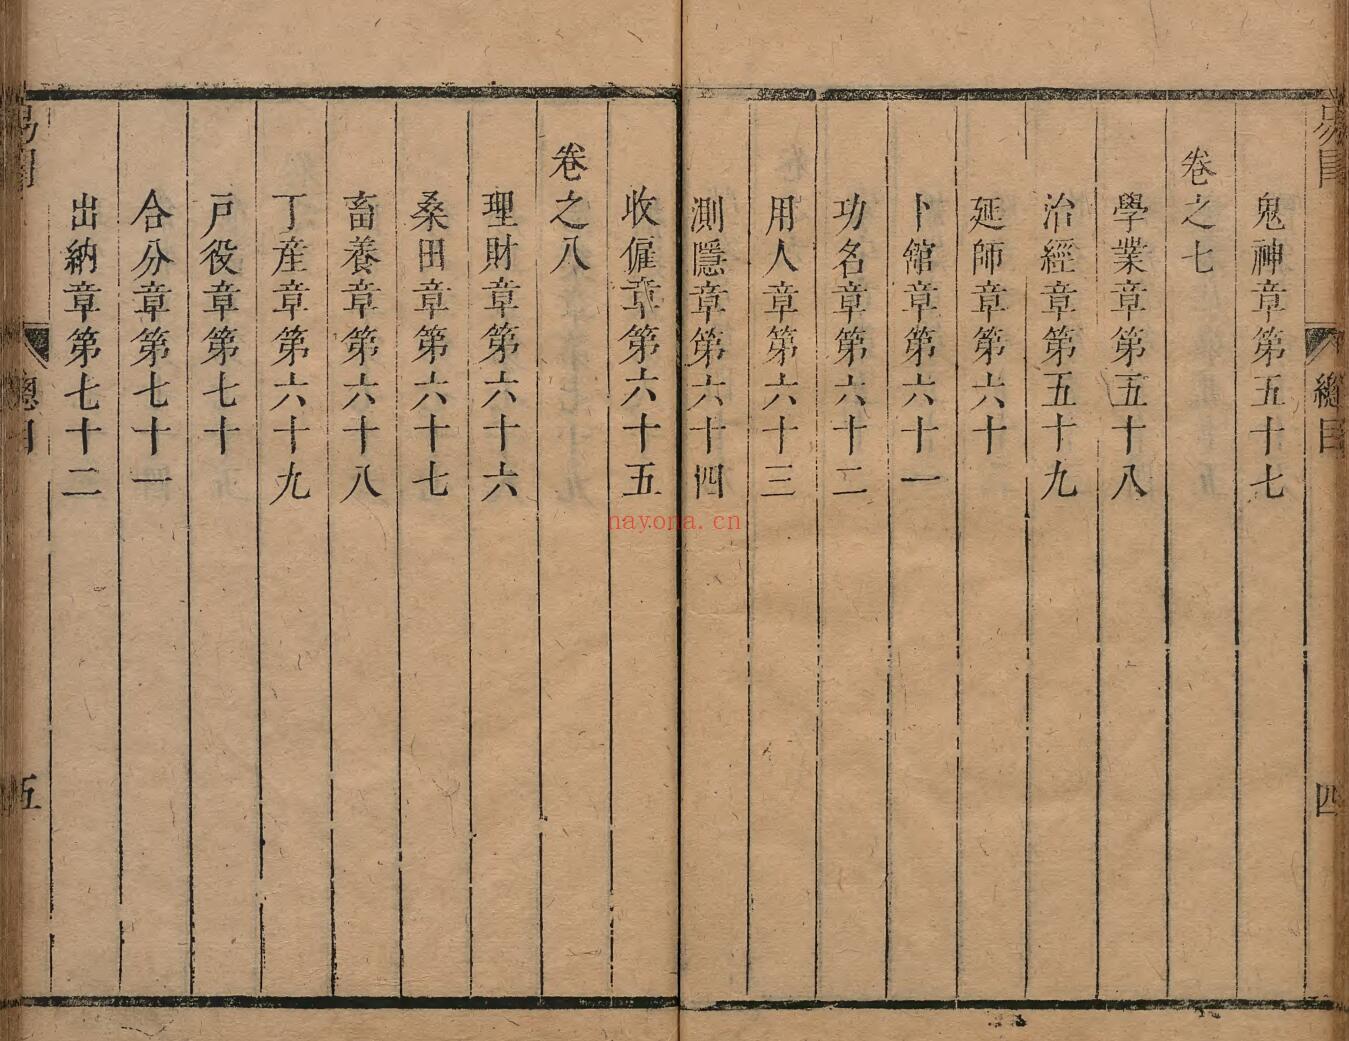 鬼神章第五十七
卷之七
學業章第五十八
治經章第五十九
延師章第六十
卜館章第六十一
功名章第六十二
用人章第六十三
測隱章第六十四
收僱章第六十五
卷之八
理財章第六十六
桑田章第六十七
畜養章第六十八
丁産章第六十九
戸役章第七十
合分章第七十一
出納章第七十二
總目
四
總目
五
nayona.cn